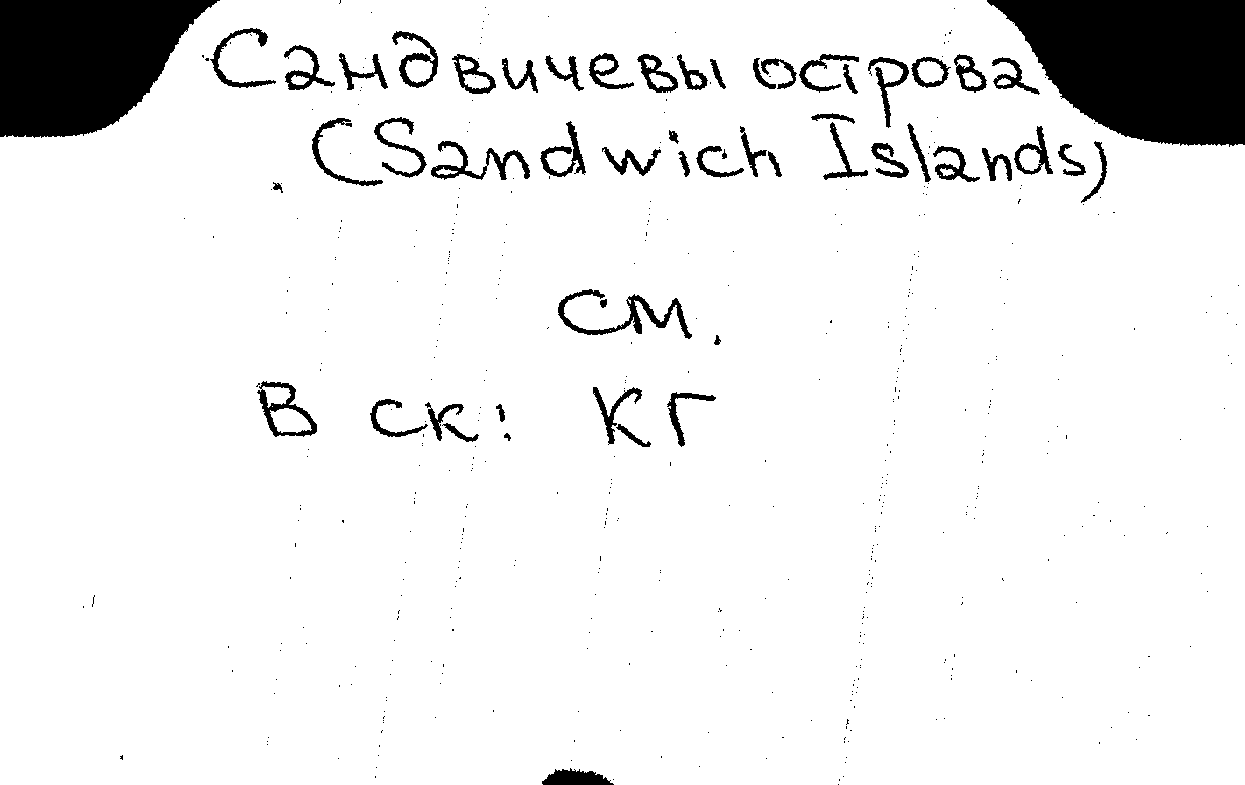 Сандвичевы острова
(Sandwich Islands)
см.
В ск: КГ